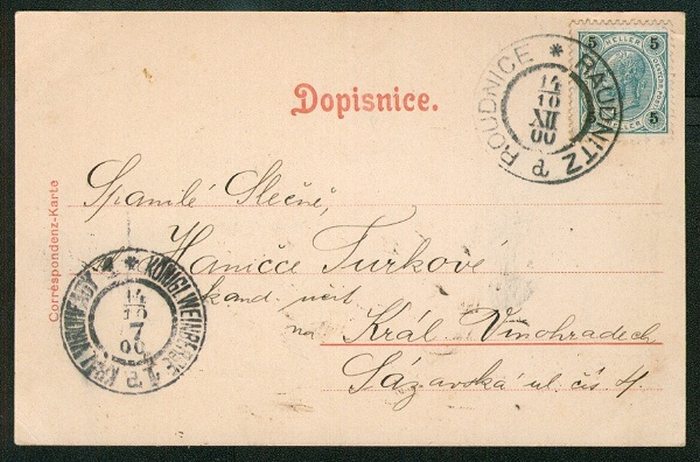 Dopisnice.
5 HELLER 5
5 HELLER 5
ROUDNICE * RAUDNITZ
14
10
XII
00
Correspondenz-Karte
Spanilé Slečně,
Haničce Turkové
kand. učit
na Král Vinohradech
Sázavská ul. čís 4
* KÖNIGL. WEINBERGE 1
14
10
7
00